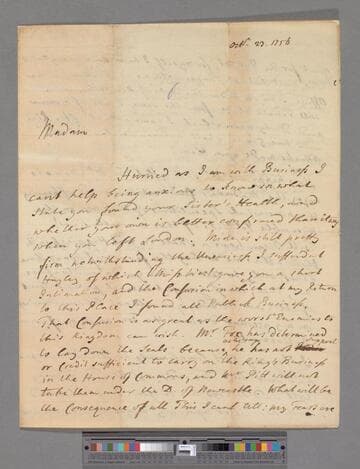 Octr. 23. 1756
Madam
Hurried as I am with Business I
can't help being anxious to know in what
State you found your Sister's Health, and
whether your own is better confirmed than it was
when you left London. Mine is still pretty
firm notwithstanding the Uneasiness I suffer and
of which gives you a short
Intimation, and the Confusion in which at my Return
to this Place I found all Publick Business.
That Confusion is as great as the worst Enemies to
this Kingdom can wish. Mr. Fox has determined
to lay down the Seals because he has not support
or Credit sufficient to carry on the King's Business
in the House of Commons, and Mr. Pitt will not
take them under the D. of Newcastle. What will be
the Consequence of all This I cant tell;